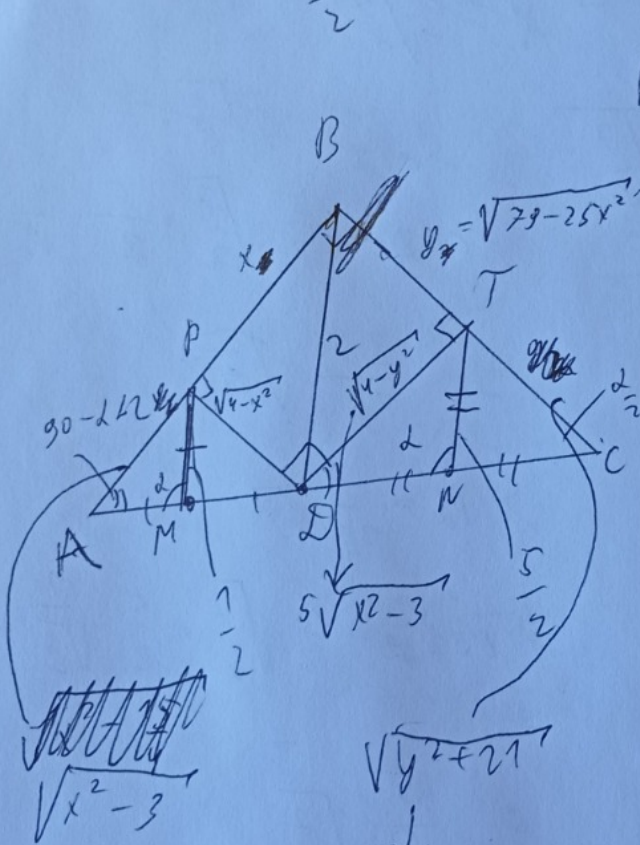 2
B
x
y = √(79-25x²)
T
P
2
√(4-x²)
√(4-y²)
90-α/2
α
α
α/2
A
M
D
N
C
1/2
5√(x²-3)
5/2
√(x²-3)
√(y²+21)